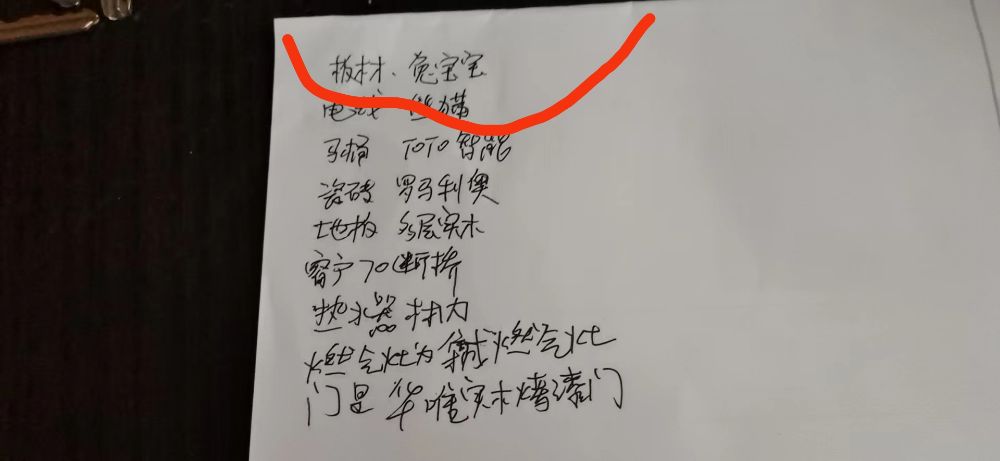 板材、兔宝宝
电线 熊猫
马桶 TOTO智能
瓷砖 罗马利奥
地板 多层实木
窗户70断桥
热水器 林内
燃气灶为集成燃气灶
门是 华唯实木烤漆门